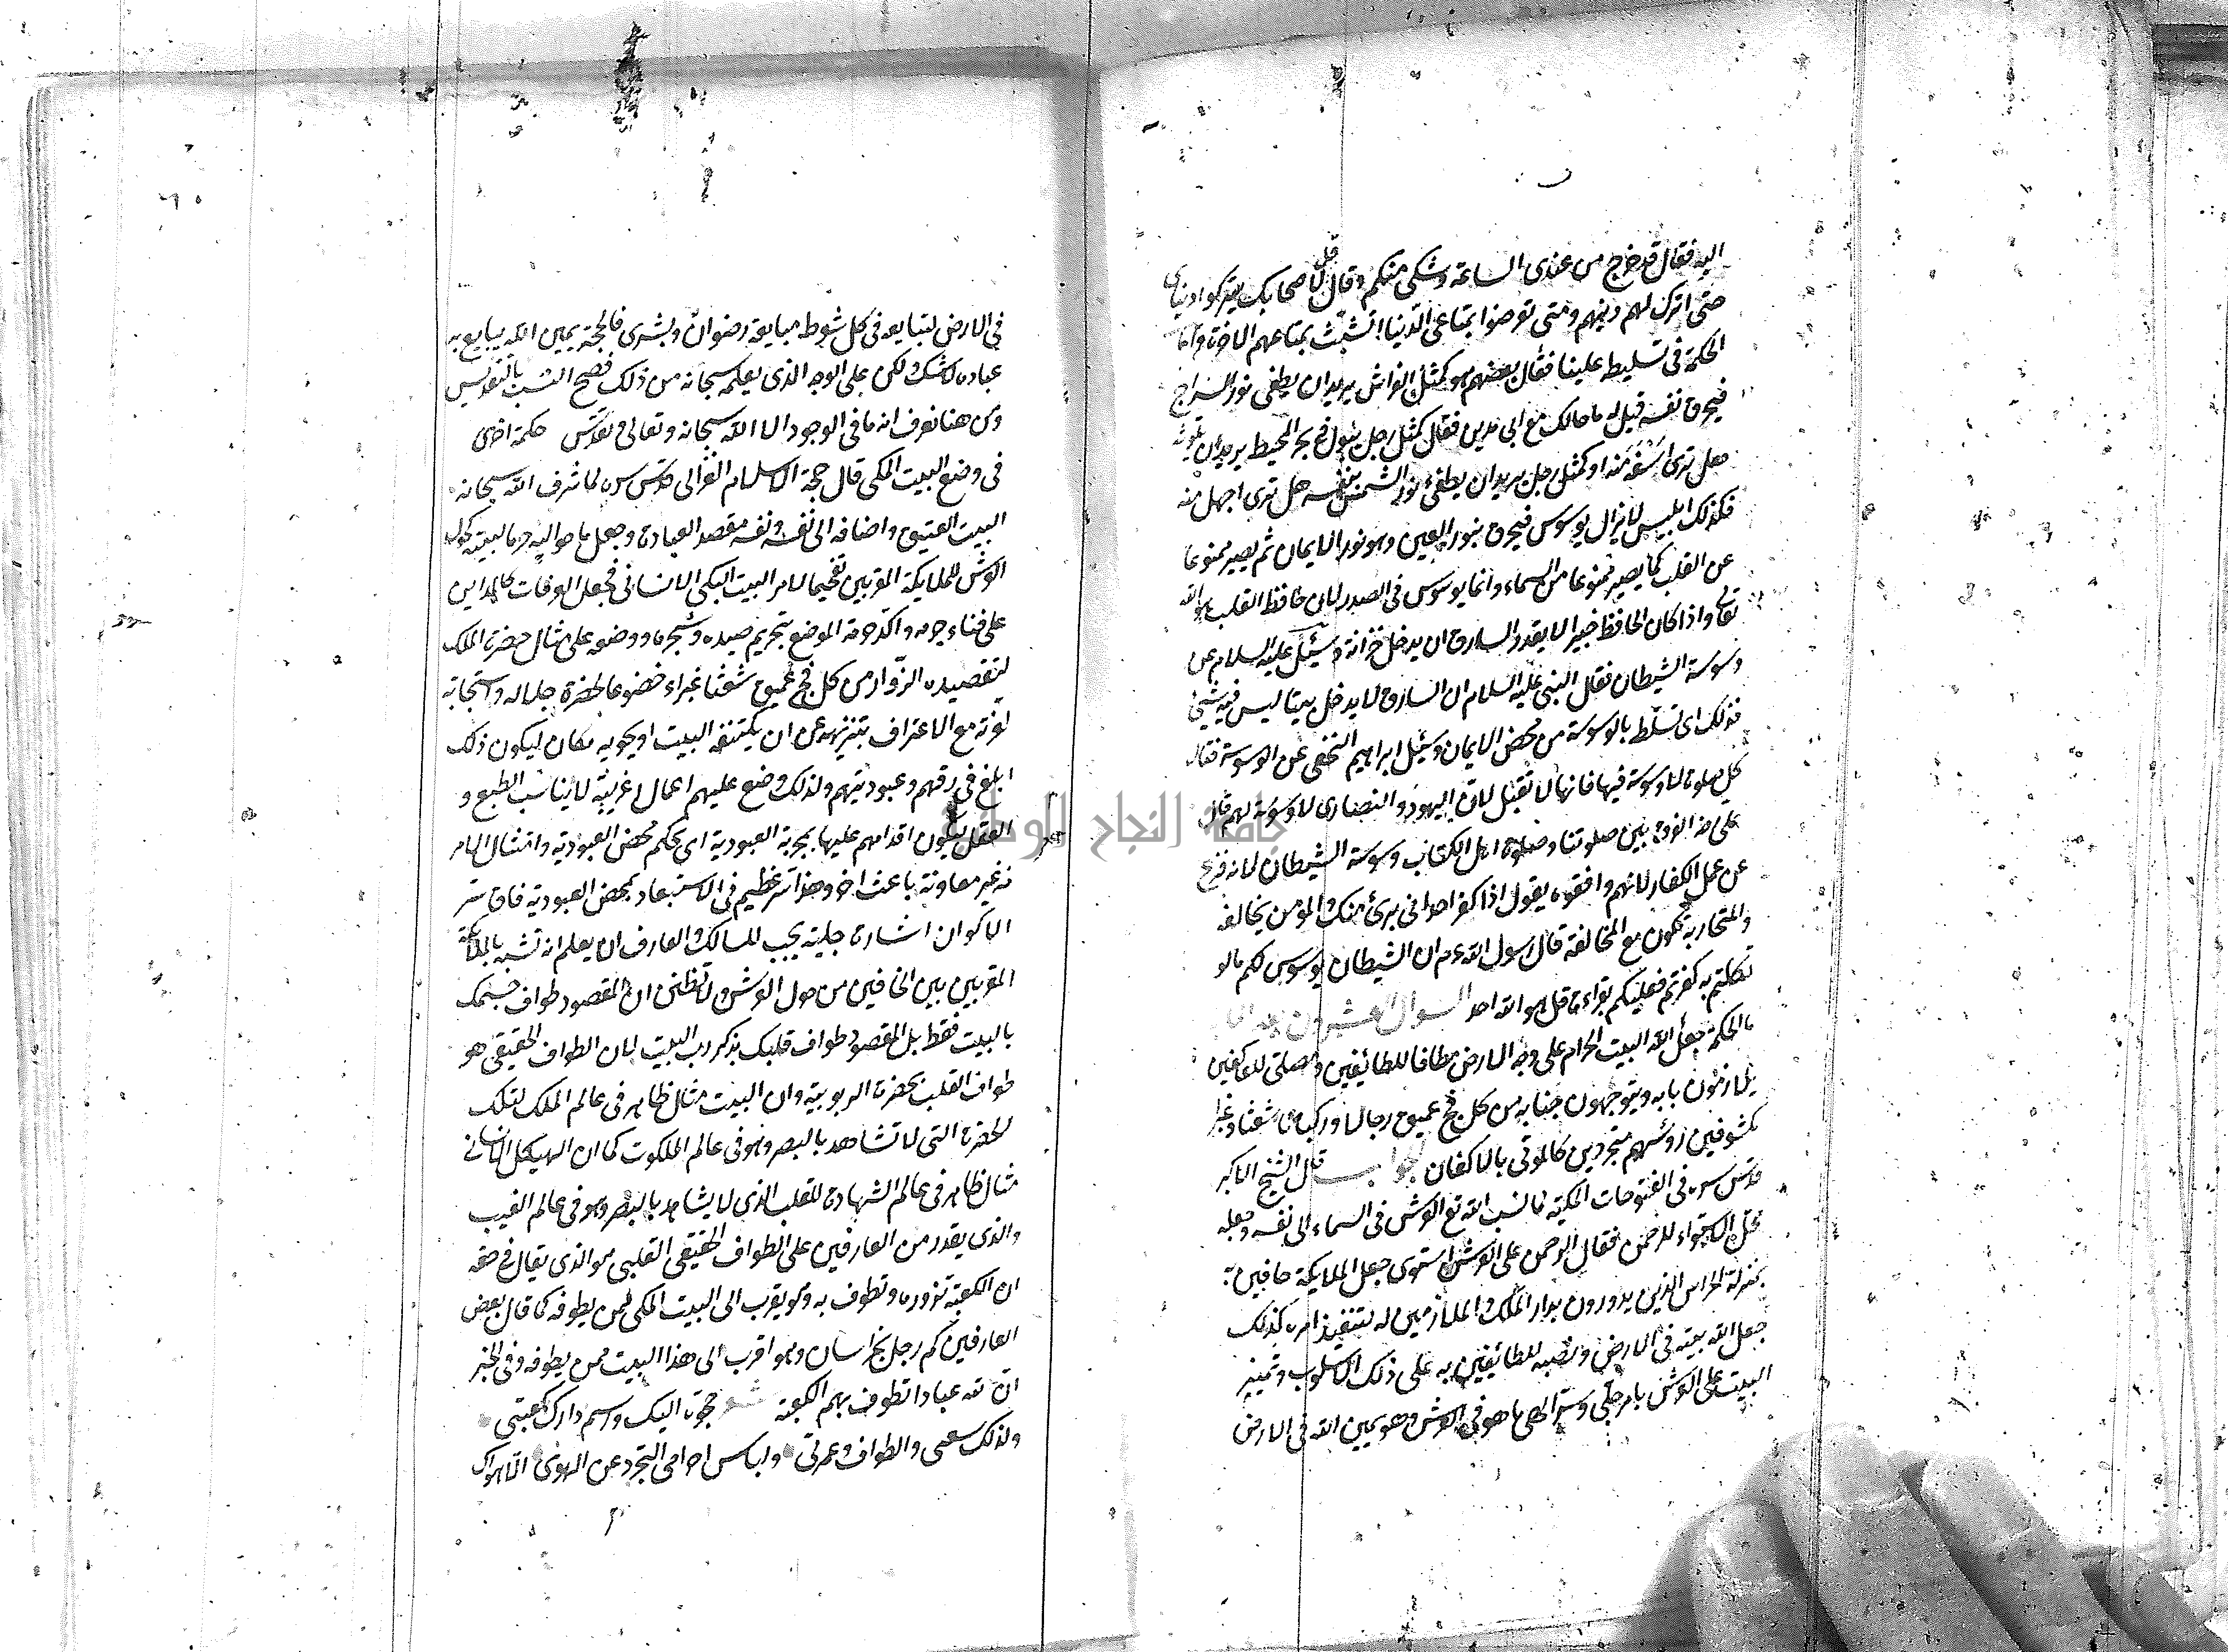 اليه فقال قد خرج من عندى الساعة وشكى منكم وقال قل لاصحابك يتركوا دنياى
حتى اترك لهم دينهم ومتى تعرضوا بمتاعى الدنيا اتشبث بمتاعهم الاخرة واما
الحكمة فى تسليطه علينا فقال بعضهم هو كمثل الفراش يريد ان يطفى نور السراج
فيحرق نفسه قيل له ما حالك مع ابى مدين فقال كمثل رجل يبول فى بحر المحيط يريد ان يلوثه
هل ترى اسفه منه او كمثل رجل يريد ان يطفئ نور الشمس بنفسه هل ترى اجهل منه
فكذلك ابليس لا يزال يوسوس فيحرق بنور اليقين وهو نور الايمان ثم يصير ممنوعا
عن القلب كما يصير ممنوعا من السماء وانما يوسوس فى الصدر لان حافظ القلب هو الله
تعالى واذا كان الحافظ خبيرا لا يقدر السارق ان يدخل خزانة وسئل عليه السلام عن
وسوسة الشيطان فقال النبى عليه السلام ان السارق لا يدخل بيتا ليس فيه شيئ
فذلك اى تسلط بالوسوسة من محض الايمان وسئل ابراهيم النخعى عن الوسوسة فقال
كل صلوة لا وسوسة فيها فانها لا تقبل لان اليهود والنصارى لا وسوسة لهم قال
على رضه الفرق بين صلوتنا وصلوة اهل الكتاب وسوسة الشيطان لانه فرغ
عن عمل الكفار لانهم وافقوه يقول اذا كفر احد انى برئ منك والمؤمن يخالفه
والمحاربة تكون مع المخالفة قال رسول الله عم ان الشيطان يوسوس لكم ما لو
تكلمتم به كفرتم فعليكم بقراءة قل هو الله احد السوال العشرون
ما الحكمة جعل الله البيت الحرام على وجه الارض مطافا للطائفين ومصلى للعاكفين
يلازمون بابه ويتوجهون جنابه من كل فج عميق رجالا وركبانا شعثا وغبرا
مكشوفين رؤسهم متجردين كالموتى بالاكفان جواب قال الشيخ الاكبر
قدس سره فى الفتوحات المكية لما نسب الله تع العرش فى السماء الى نفسه وجعله
محل الاستواء للرحمن فقال الرحمن على العرش استوى جعل الملايكة حافين به
بمنزلة الحراس الذين يدورون بدار الملك والملازمين له لتنفيذ امره كذلك
جعل الله بيته فى الارض ونصبه للطائفين به على ذلك الاسلوب وتميز
البيت على العرش بامر جلى وسر الهى ما هو فى العرش وهو يمين الله فى الارض
فى الارض لتبايعه فى كل شوط مبايعة رضوان وبشرى فالحجة يمين الله يبايع به
عباده لا شك لكن على الوجه الذى يعلمه سبحانه من ذلك فصح النسب بالتقديس
ومن هنا نعرف انه ما فى الوجود الا الله سبحانه وتعالى وتقدس حكمة اخرى
فى وضع البيت المكى قال حجة الاسلام الغزالى قدس سره لما شرف الله سبحانه
البيت العتيق واضافه الى نفسه ونصبه مقصد العباده وجعل ما حواليه حرما لبيته كحول
العرش للملايكة المقربين تفخيما لامر البيت البكى الانسانى فجعل العرفات كالميدان
على فناء حرمه واكد حرمة الموضع بتحريم صيده وشجره ووضعه على مثال حضرة الملك
لتقصيده الزوار من كل فج عميق شعثا غبراء خضوعا لحضرة جلاله واستجابة
لعزته مع الاعتراف بتنزيهه عن ان يكتنفه البيت او يحويه مكان ليكون ذلك
ابلغ فى رقهم وعبوديتهم ولذلك وضع عليهم اعمالا غريبة لا يناسب الطبع و
العقل ليكون اقدامهم عليها بمجرد العبودية اى بحكم محض العبودية وامتثال الامر
من غير معاونة باعث اخر وهذا سر عظيم فى الاستبعاد بمحض العبودية فاق سر
الاكوان اشارة جلية يجب للسالك والعارف ان يعلم انه تشبه بالملائكة
المقربين بين الحافين من حول العرش ولا تظنن ان المقصود طواف جسمك
بالبيت فقط بل المقصود طواف قلبك بذكر رب البيت لان الطواف الحقيقى هو
طواف القلب بحضرة الربوبية وان البيت مثال ظاهر فى عالم الملك لتلك
الحضرة التى لا تشاهد بالبصر وهو فى عالم الملكوت كما ان الهيكل الانسانى
مثال ظاهر فى عالم الشهادة للقلب الذى لا يشاهد بالبصر وهو فى عالم الغيب
والذى يقدر من العارفين على الطواف الحقيقى القلبى هو الذى يقال فى حقه
ان الكعبة تزوره وتطوف به وهو يقرب الى البيت المكى ممن يطوفه كما قال بعض
العارفين كم رجل بخراسان وهو اقرب الى هذا البيت ممن يطوفه وفى الخبر
ان لله عبادا تطوف بهم الكعبة شعر حجوت اليك ورسم دارك كعبتى
ولذلك سعى والطواف وعمرتى ولباس احرامى التجرد عن الهوى
جامعة النجاح الوطنية